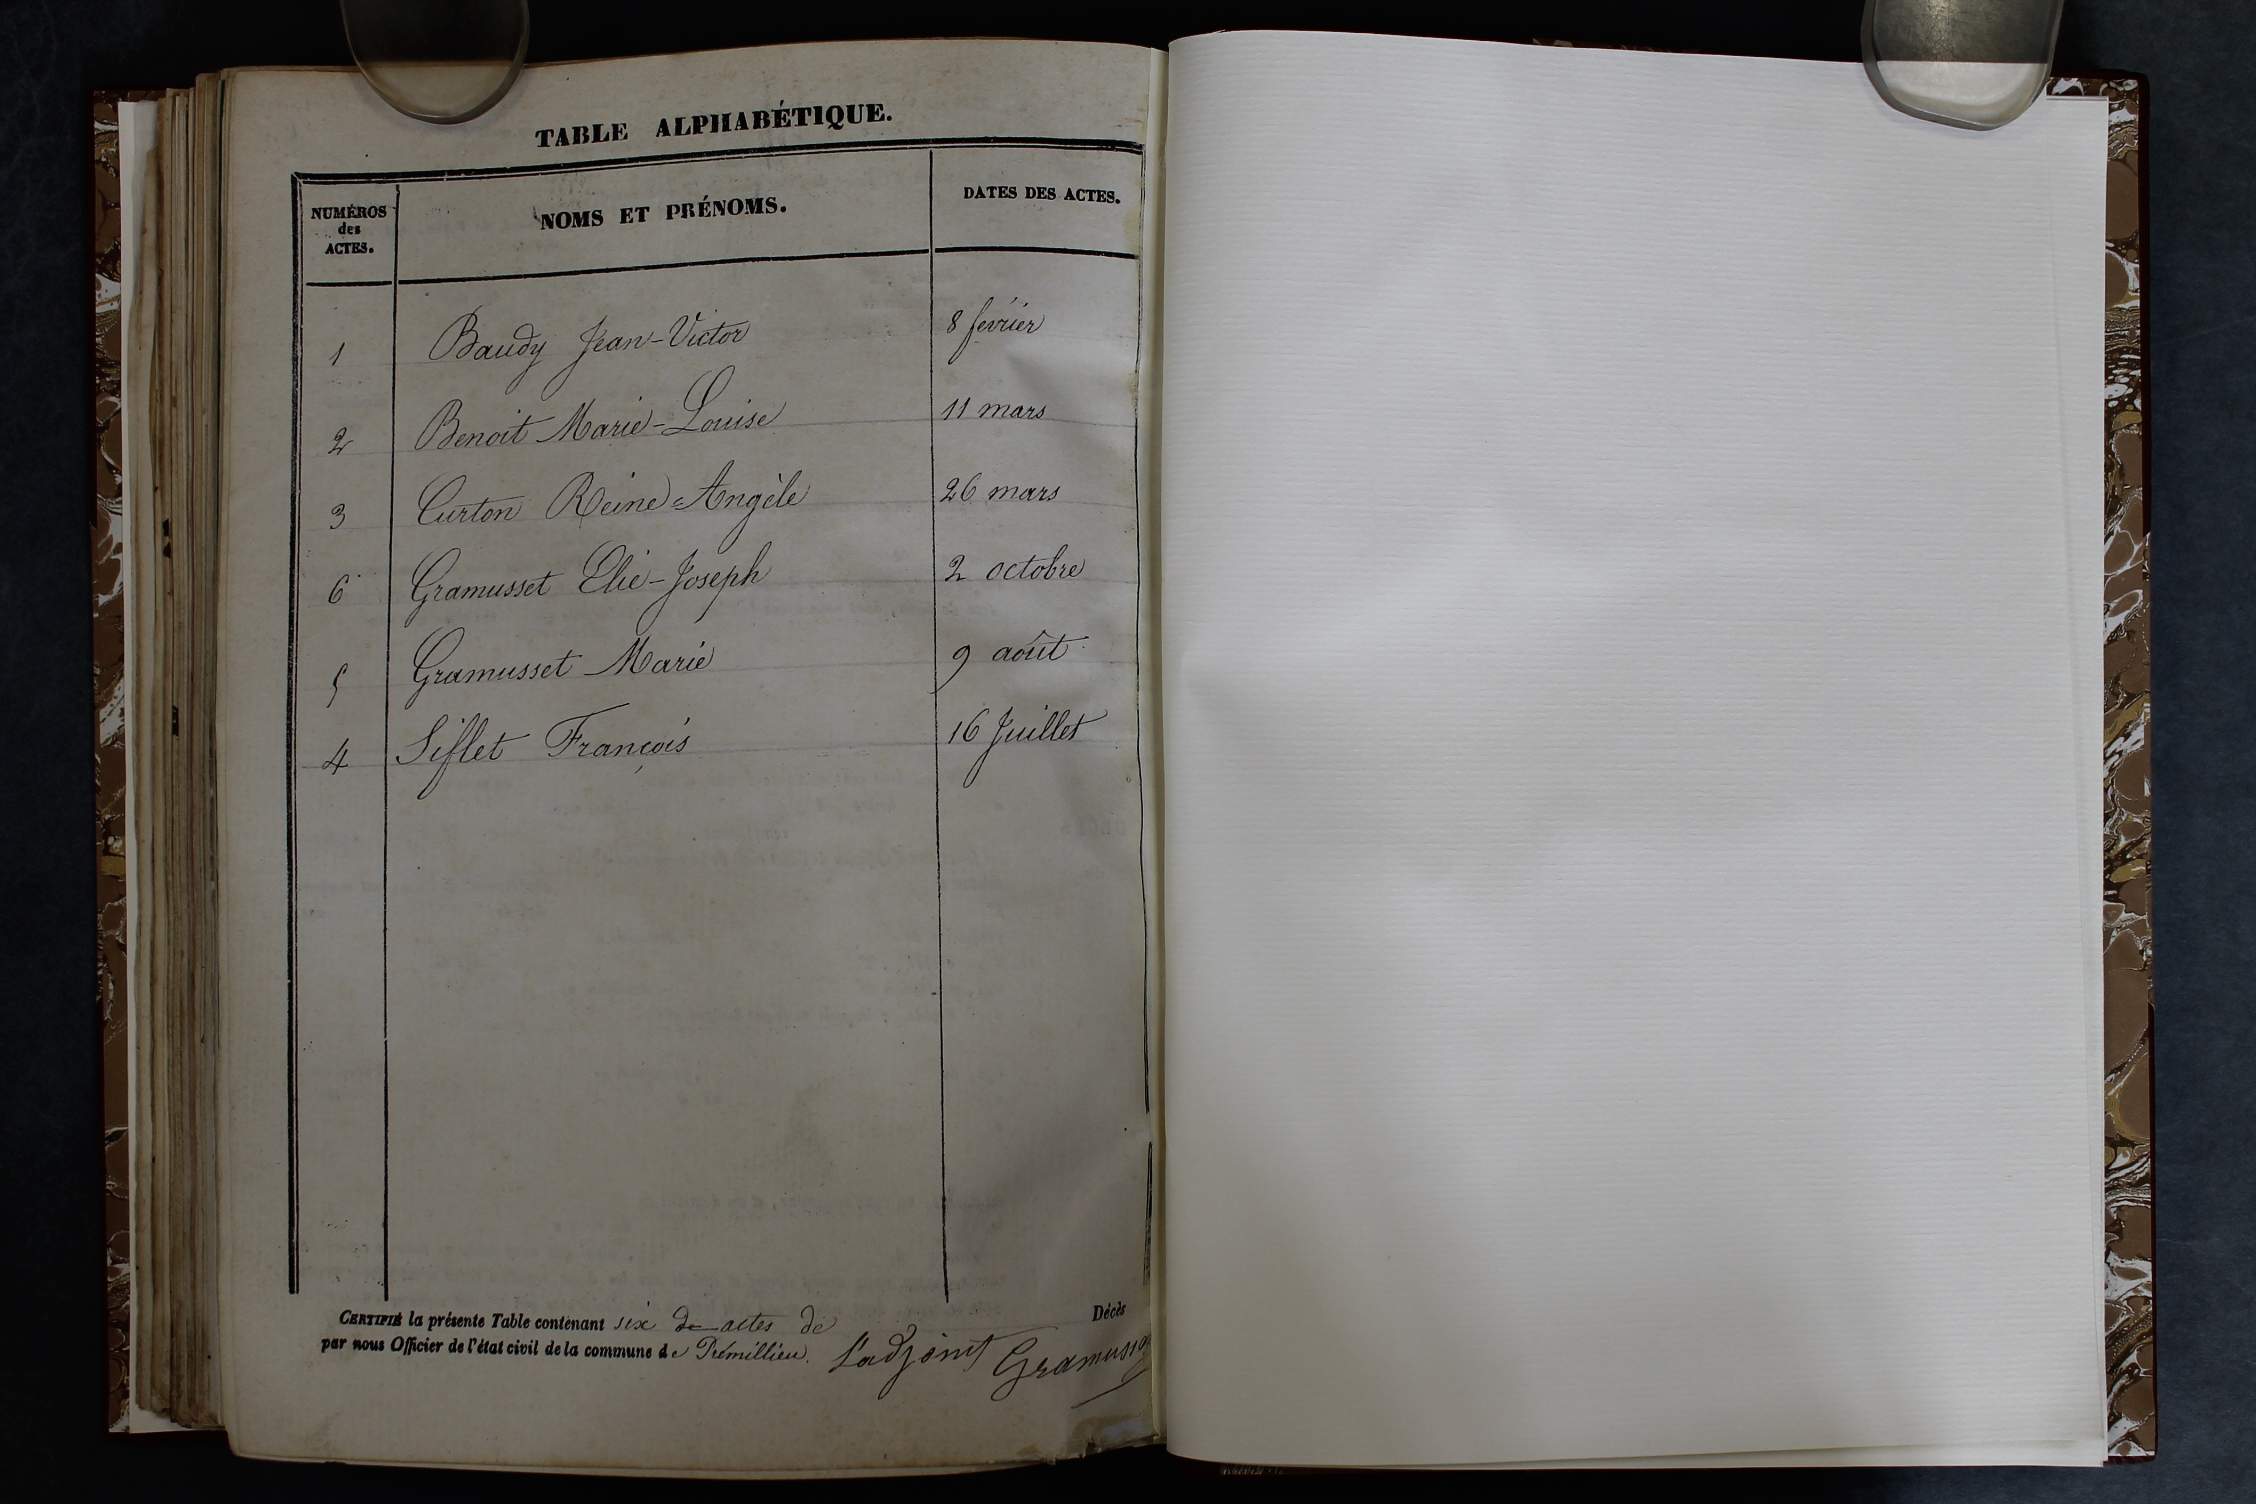 TABLE ALPHABÉTIQUE.
NUMÉROS des ACTES. NOMS ET PRÉNOMS. DATES DES ACTES.
1 Baudy Jean-Victor 8 février
2 Benoit Marie-Louise 11 mars
3 Curton Reine-Angèle 26 mars
6 Gramusset Elie-Joseph 2 octobre
5 Gramusset Marie 9 août
4 Siflet François 16 Juillet
CERTIFIÉ la présente Table contenant six de actes de Décès
par nous Officier de l'état civil de la commune de Prémillieu. L'adjoint